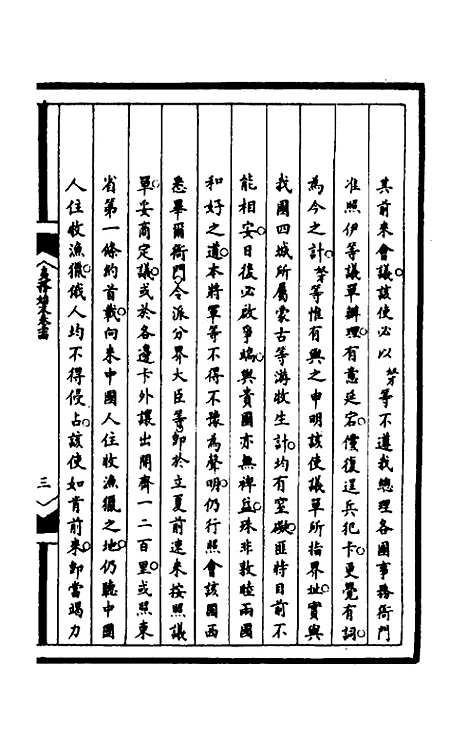 其前來會議。該使必以等不遵我總理各國事務衙門
准照伊等議單辦理。有意延宕。儻復逞兵犯卡。更覺有詞。
為今之計。等惟有與之申明該使議單所指界址。實與
我國四城所屬蒙古等游牧生計。均有窒礙。匪特目前不
能相安。日後必啟爭端。與貴國亦無裨益。殊非敦睦兩國
和好之道。本將軍等不得不豫為聲明。仍行照會該國西
悉畢爾衙門。令派分界大臣等。即於立夏前速來按照議
單妥商定議。或於各邊卡外讓出開齊一二百里。或照東
省第一條約首載。向來中國人住牧漁獵之地。仍聽中國
人住牧漁獵。俄人均不得侵占。該使如肯前來。即當竭力
三